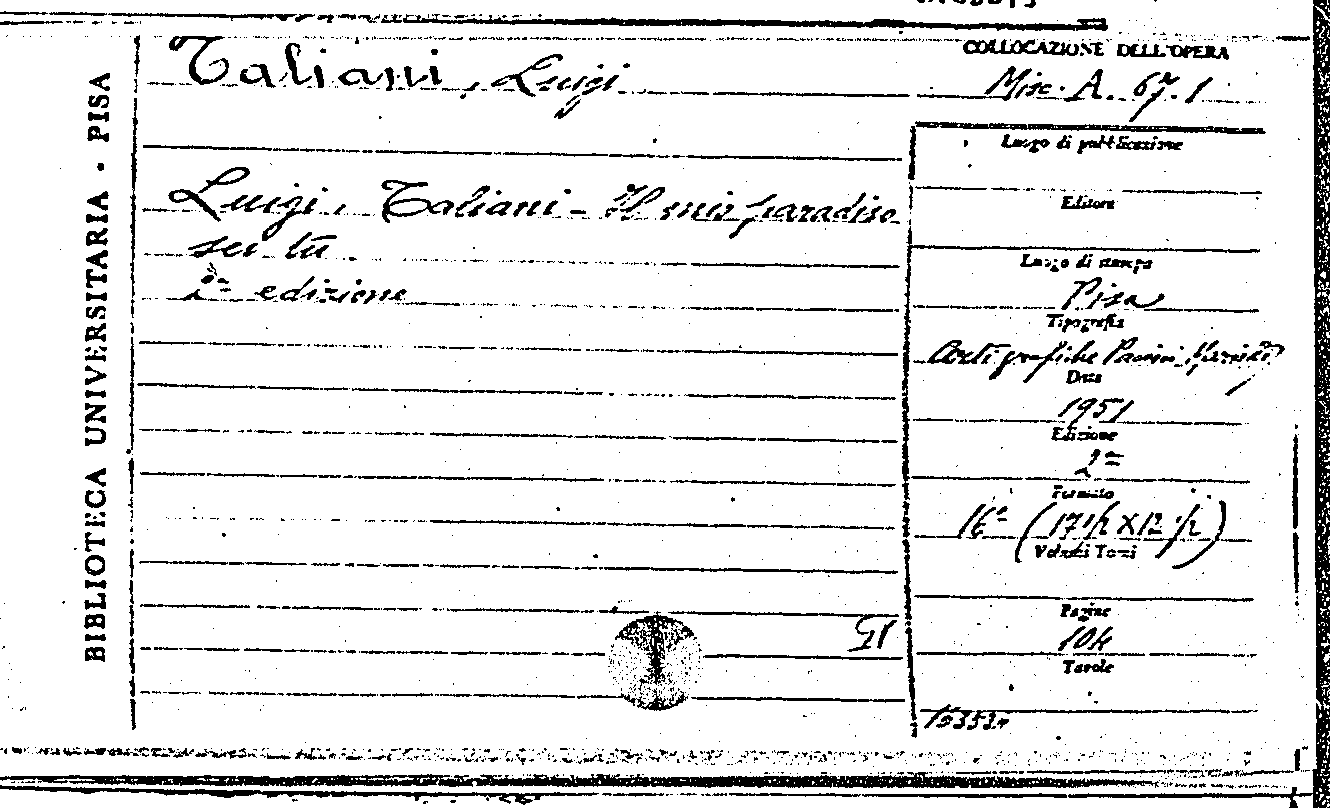 BIBLIOTECA UNIVERSITARIA - PISA
Taliani, Luigi
Luigi, Taliani - Il mio paradiso
sei tu
2ª edizione
51
COLLOCAZIONE DELL'OPERA
Misc. A. 67.1
Luogo di pubblicazione
Editore
Luogo di stampa
Pisa
Tipografia
Arti grafiche Pacini
Data
1951
Edizione
2ª
Formato
16º (17 1/2 X 12 1/2)
Volumi Tomi
Pagine
104
Tavole